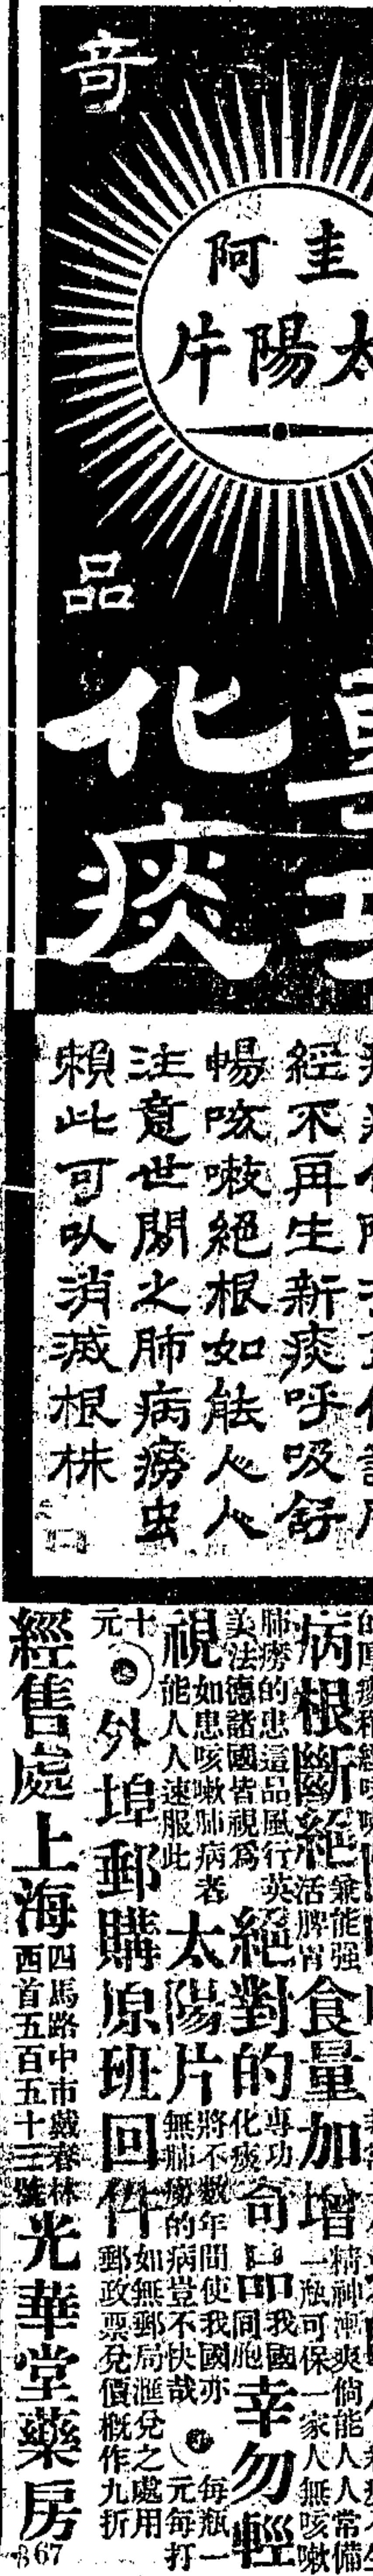 奇
品
圭阿
太陽片
專功
化痰
經不再生新痰呼吸舒
暢咳嗽絕根如能人人
注意世間之肺病癆虫
賴此可以消滅根株
病根斷絕
兼能强
活脾胃
食量加增
精神爽倘能人人常備
一瓶可保一家人無咳嗽
肺癆的患這品風行英
美法德諸國皆視爲
絕對的
專功
化痰
奇品
我國
同胞
幸勿輕
視
如患咳嗽肺病者
能人人速服此
太陽片
將不數年間使我國亦
無肺癆的病豈不快哉
每瓶一
元每打
十
元
外埠郵購原班回件
如無郵局滙兌之處用
郵政票兌價概作九折
經售處
上海
四馬路中市戴春林
西首五百五十三號
光華堂藥房
867